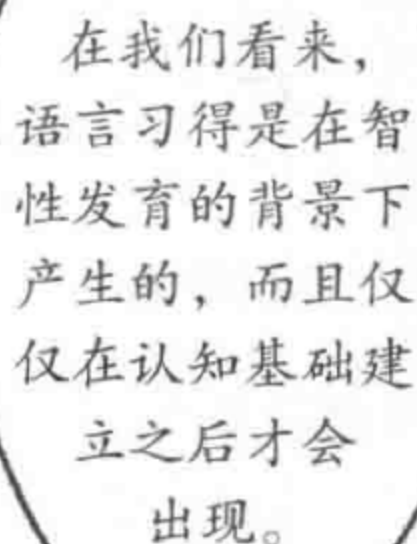 在我们看来，
语言习得是在智
性发育的背景下
产生的，而且仅
仅在认知基础建
立之后才会
出现。